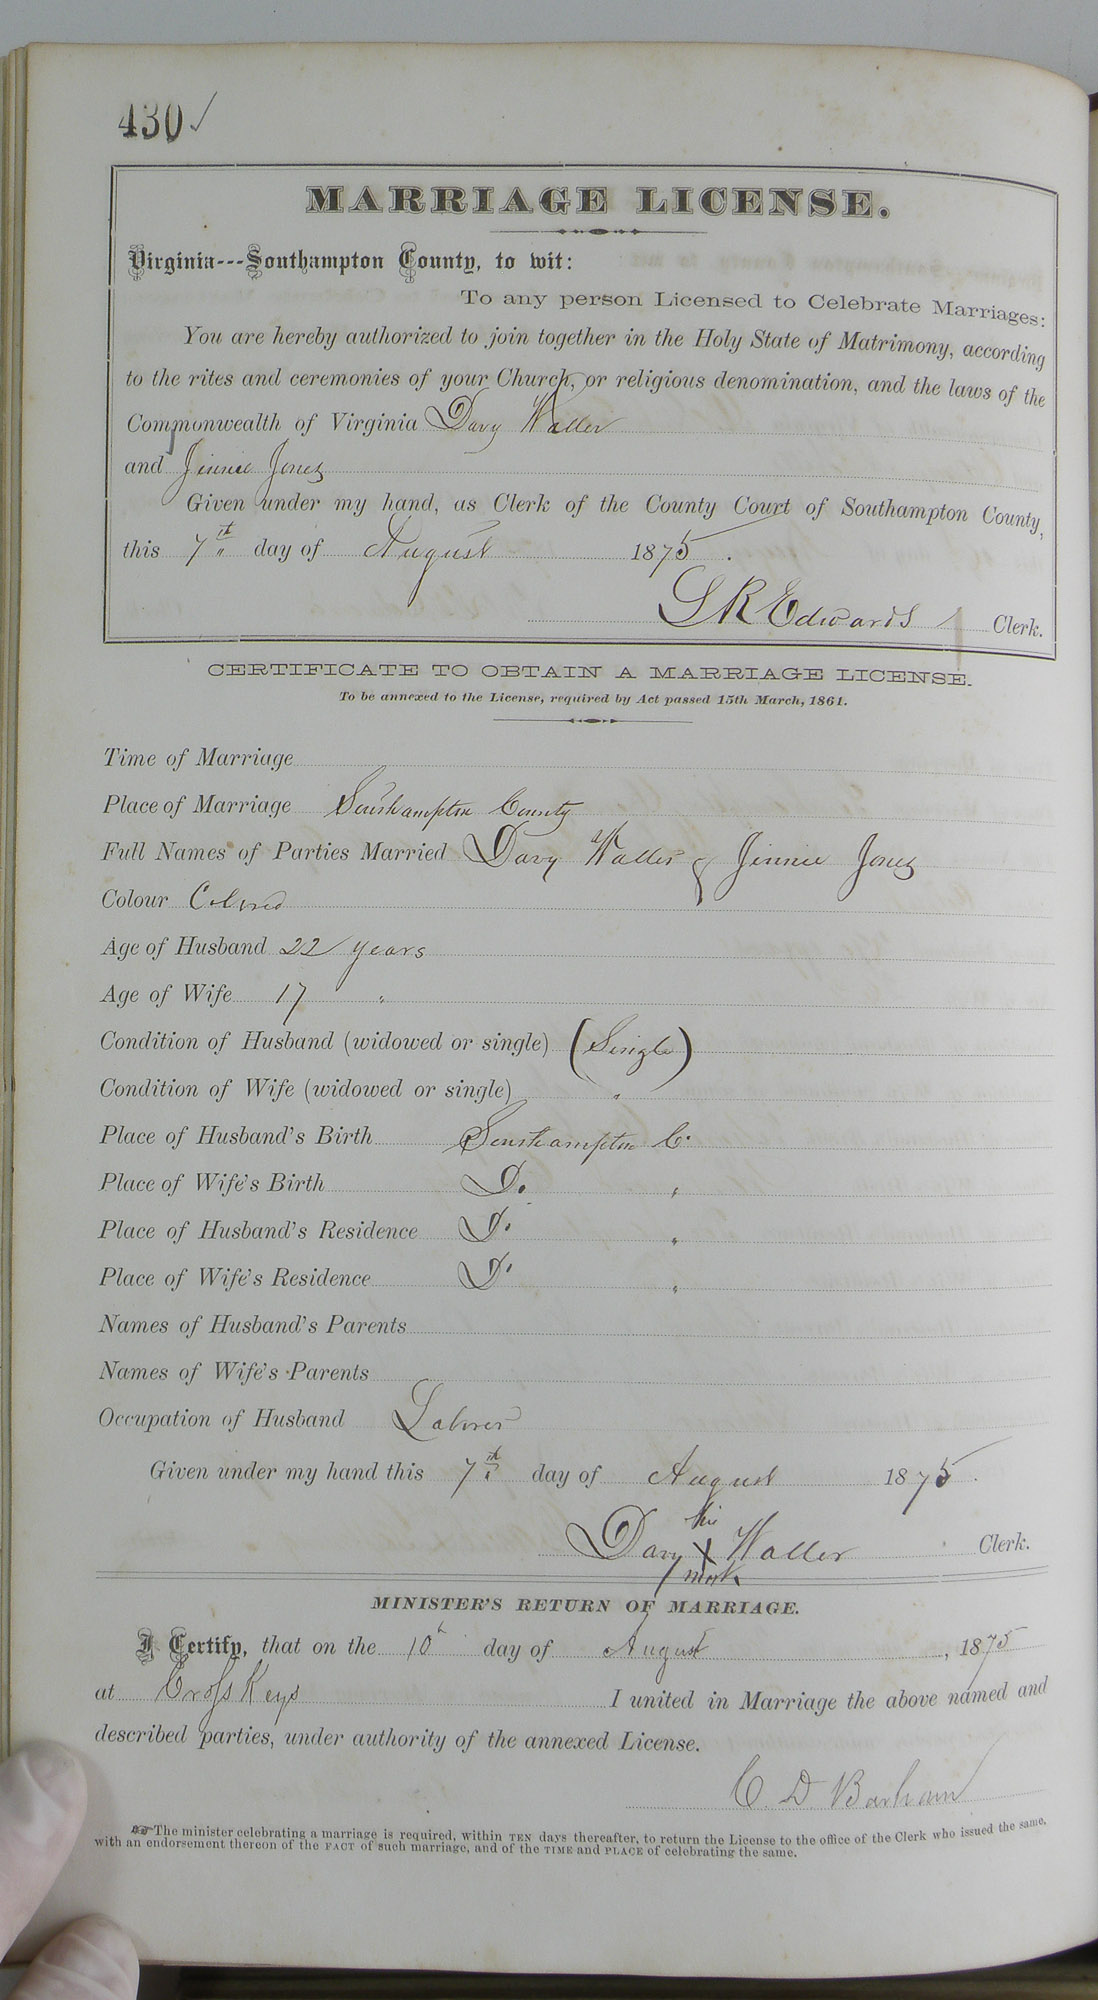 430 ✓
MARRIAGE LICENSE.
Virginia---Southampton County, to wit:
To any person Licensed to Celebrate Marriages:
You are hereby authorized to join together in the Holy State of Matrimony, according
to the rites and ceremonies of your Church, or religious denomination, and the laws of the
Commonwealth of Virginia Davy Waller
and Jinnie Jones
Given under my hand, as Clerk of the County Court of Southampton County,
this 7th day of August 1875.
L R Edwards Clerk.
CERTIFICATE TO OBTAIN A MARRIAGE LICENSE.
To be annexed to the License, required by Act passed 15th March, 1861.
Time of Marriage
Place of Marriage Southampton County
Full Names of Parties Married Davy Waller & Jinnie Jones
Colour Colored
Age of Husband 22 years
Age of Wife 17 "
Condition of Husband (widowed or single) (Single)
Condition of Wife (widowed or single) "
Place of Husband's Birth Southampton Co.
Place of Wife's Birth Do. "
Place of Husband's Residence Do "
Place of Wife's Residence Do "
Names of Husband's Parents
Names of Wife's Parents
Occupation of Husband Laborer
Given under my hand this 7th day of August 1875.
his
Davy X Waller Clerk.
mark
MINISTER'S RETURN OF MARRIAGE.
I Certify, that on the 10th day of August, 1875
at Cross Keys I united in Marriage the above named and
described parties, under authority of the annexed License.
C. D Barham
☞ The minister celebrating a marriage is required, within TEN days thereafter, to return the License to the office of the Clerk who issued the same,
with an endorsement thereon of the FACT of such marriage, and of the TIME and PLACE of celebrating the same.